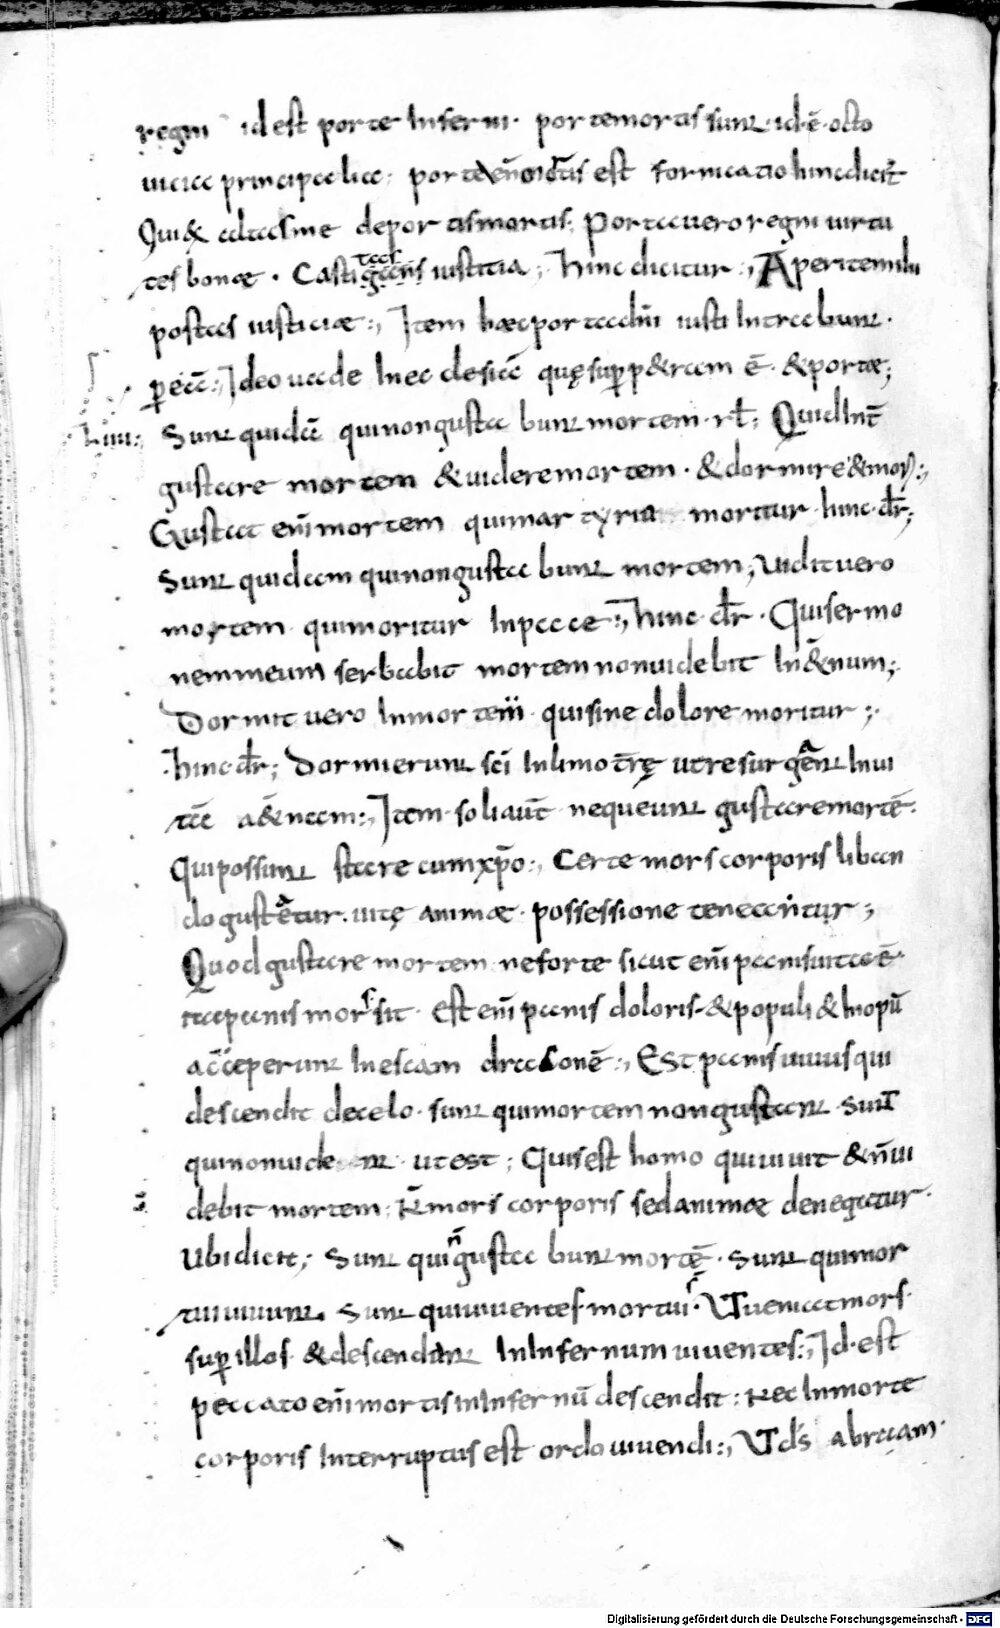 regni id est porte Inferni. porte mortis sunt. id. ē. octo
uicia principalia; porte eni mortis est fornicatio hinc dicit̄
Qui exaltas me de portis mortis; Portae uero regni uirtu
tes bonae. Castigans tas iustitia; hinc dicitur:, Aperite mihi
postas iusticiae:, Item haec porta dni iusti Intrabunt.
p eā:, Ideo uade Inec clesiā quę sup petram ē. & portae;
Lxiiii:, Sunt quidā qui non gusta bunt mortem. rł; Quid Int̄
gustare mortem & uidere mortem. & dormire & mors:,
Gustat eni mortem qui martyria moritur. hinc. dr̄;
Sunt quidam qui non gusta bunt mortem; Uidit uero
mortem qui moritur In pace:, hinc. dr̄. Qui sermo
nem meum serbabit mortem non uidebit In &num;
Dormit uero In mortem qui sine dolore moritur;.
hinc. dr̄; Dormierunt sci In limo tr̄ę ut resurgant In ui
tā a&nam:, Item. soli aut̄ nequeunt gustare mortē.
Qui possunt stare cum xpo:, Certe mors corporis liban
do gustatur. uitę animae. possessione teneantur;
Quod gustare mortem ne forte sicut eni panis uitae ē
ita panis mortis sit. Est eni panis doloris & populi & Inopū
acceperunt In escam draconē:, Est panis uiuus qui
descendit de celo. sunt qui mortem non gustant. sunt
qui non uident. ut est; Quis est homo qui uiuit & n̄ ui
debit mortem; N mors corporis sed animae denegatur.
Ubi dicit; Sunt qui n̄ gusta bunt mortē. Sunt qui mor
tui uiuunt. Sunt qui uiuentes mortui s. Ut ueniat mors.
sup illos. & descendant In Infernum uiuentes:, Id. est
peccato eni mortis in Infernū descendit: Nec In morte
corporis Interruptus est ordo uiuendi:, Ut ds abraam.
Digitalisierung gefördert durch die Deutsche Forschungsgemeinschaft - DFG